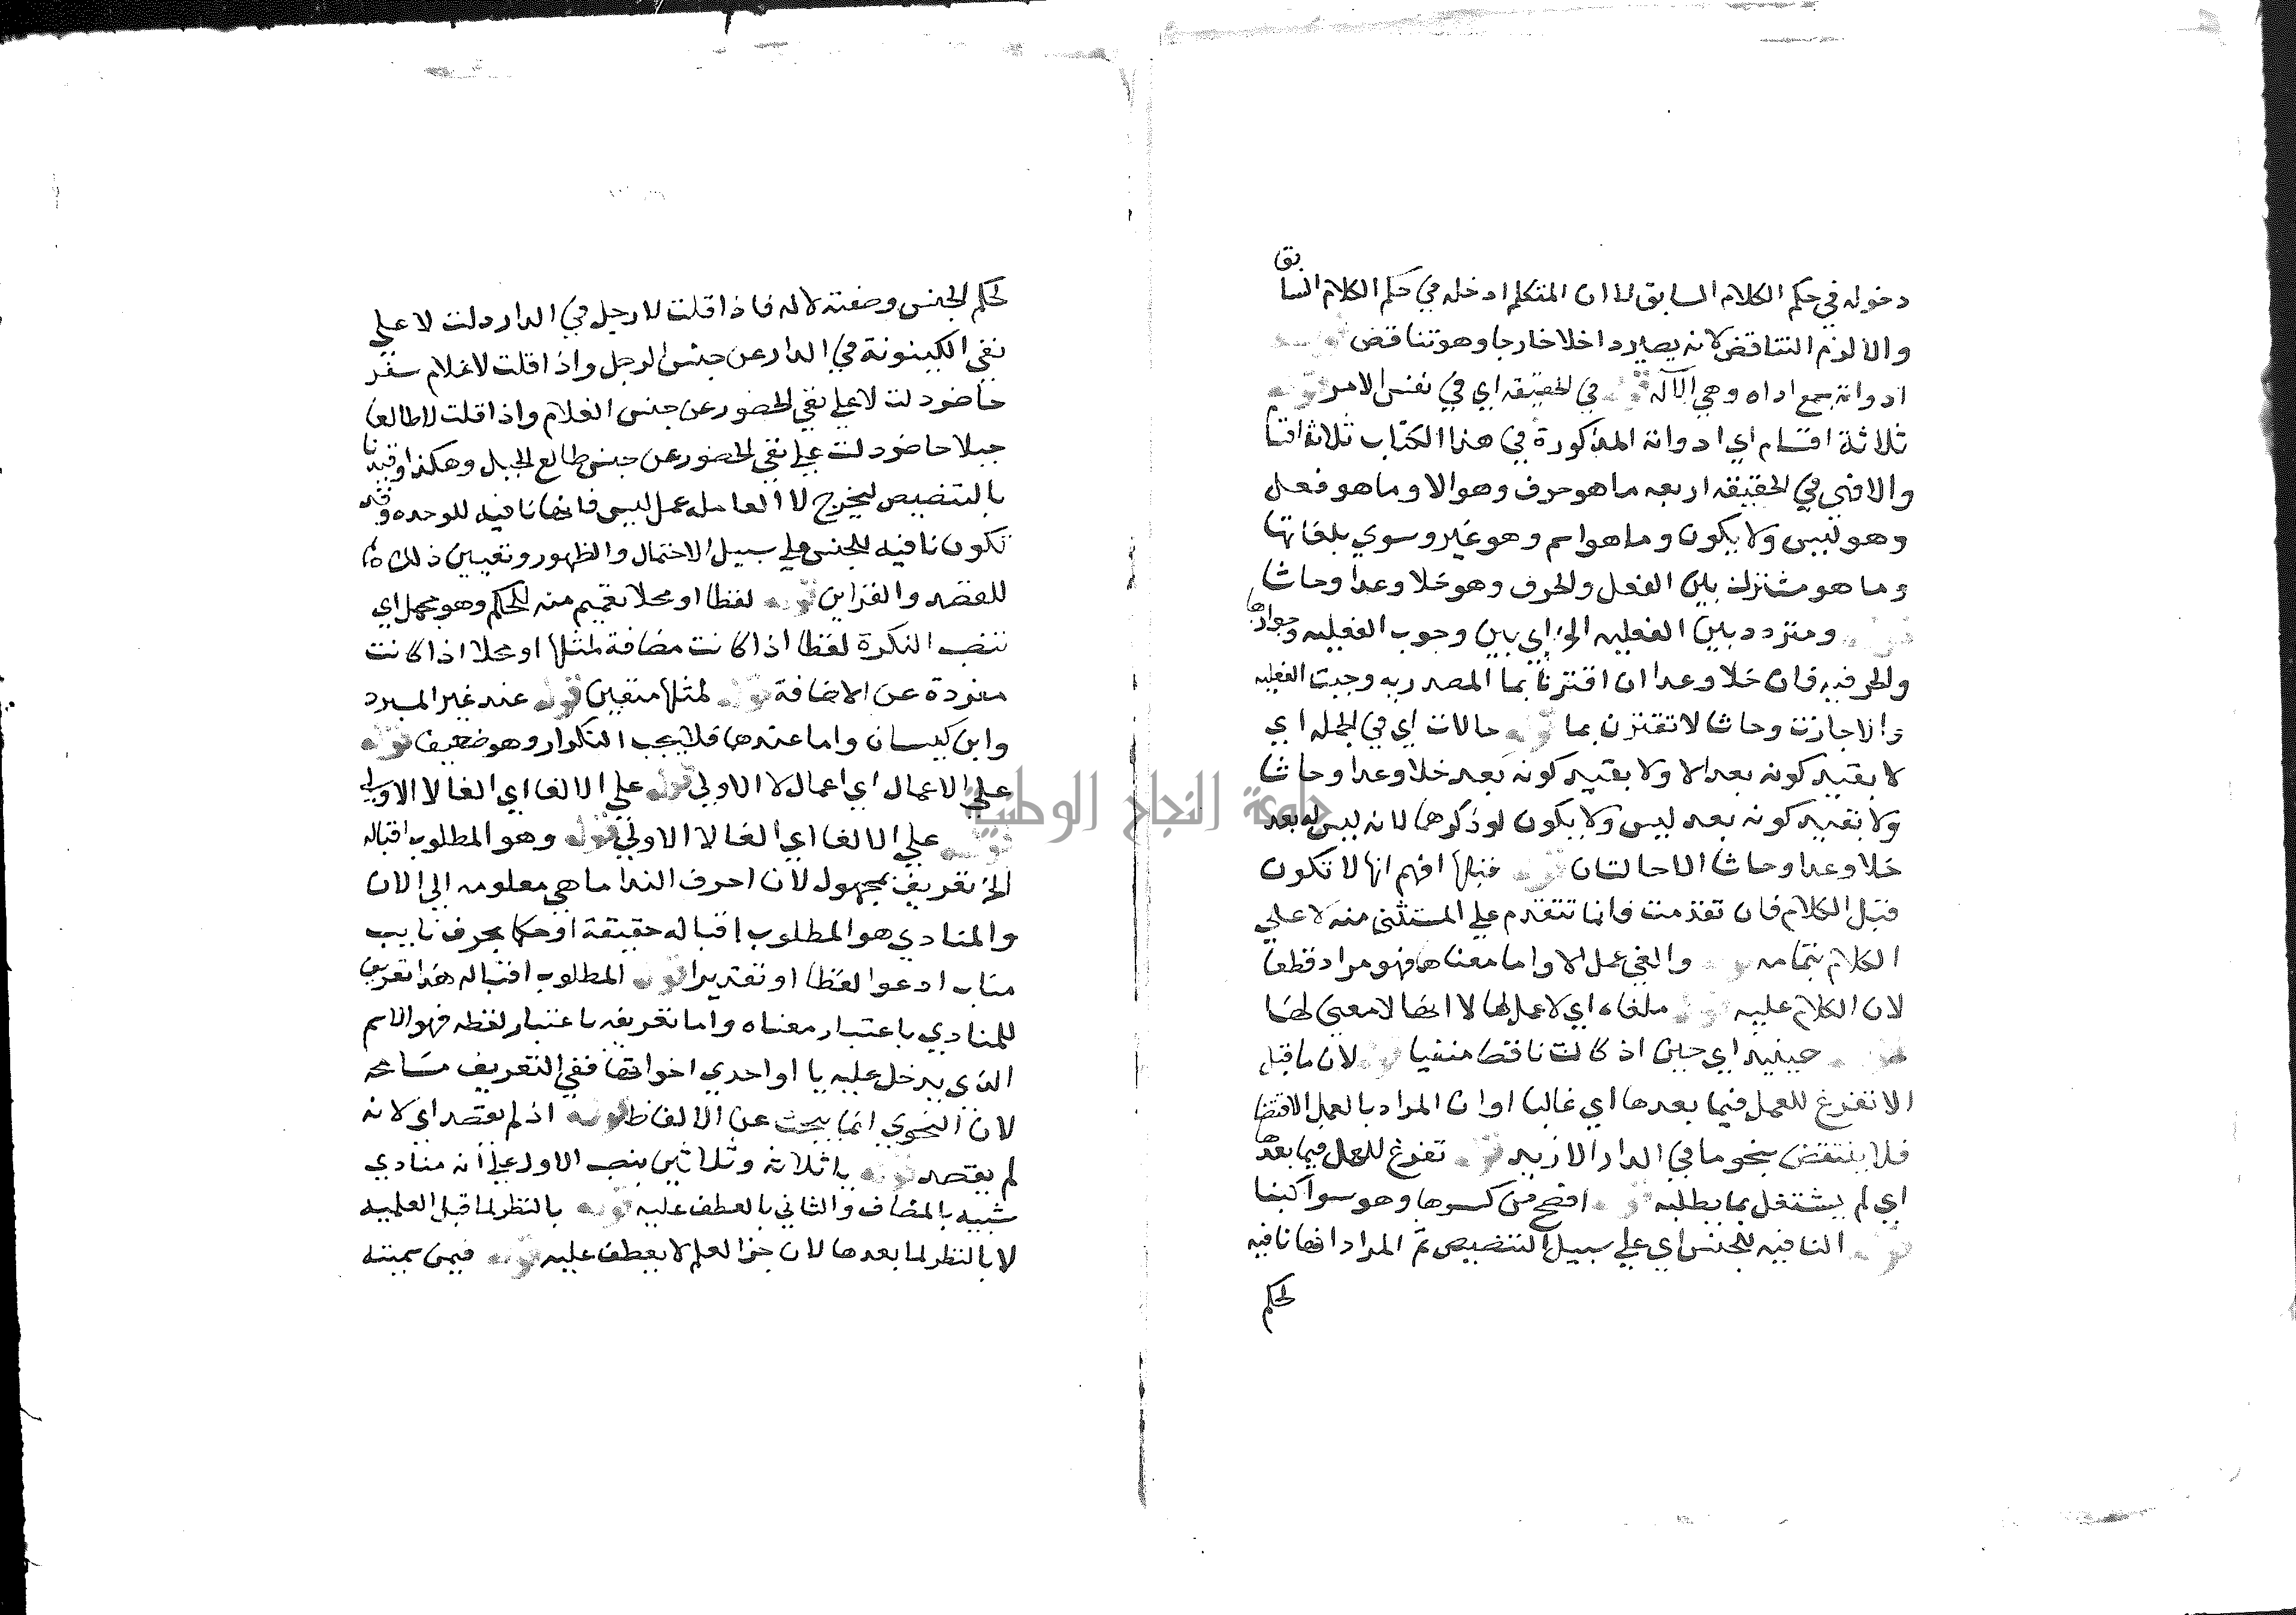 دخوله في حكم الكلام السابق لا ان المتكلم ادخله في حكم الكلام السابق
والا لزم التناقض لانه يصير داخلا خارجا وهو تناقض قوله
ادواته جمع اداه وهي الآله قوله في الحقيقه اي في نفس الامر قوله
ثلاثة اقسام اي ادواته المذكورة في هذا الكتاب ثلاثة اقسا
والا فهي في الحقيقه اربعه ما هو حرف وهو الا وما هو فعل
وهو ليس ولا يكون وما هو اسم وهو غير وسوي بلغاتها
وما هو مشترك بين الفعل والحرف وهو خلا وعدا وحاشا
قوله ومتردد بين الفعليه الخ اي بين وجوب الفعليه وجوازها
والحرفيه فان خلا وعدا ان اقترنا بما المصدريه وجبت الفعليه
والا جازت وحاشا لا تقترن بما قوله حالات اي في الجمله اي
لا بقيد كونه بعد الا ولا بقيد كونه بعد خلا وعدا وحاشا
ولا بقيد كونه بعد ليس ولا يكون لو ذكرهما لانه ليس له بعد
خلا وعدا وحاشا الا حالتان قوله قبلها افهم انها لا تكون
قبل الكلام فان تقدمت فانما تتقدم علي المستثنى منه لا علي
الكلام بتمامه قوله والغي عمل الا واما معناها فهو مراد قطعا
لان الكلام عليه قوله ملغاه اي لا عمل لها لا انها لا معنى لها
قوله حينيذ اي حين اذ كانت ناقصا منفيا قوله لان ما قبل
الا تفرغ للعمل فيما بعدها اي غالبا او ان المراد بالعمل الاقتضا
فلا ينتقض بنحو ما في الدار الا زيد قوله تفرغ للعمل فيما بعدها
اي لم يشتغل بما يطلبه قوله افصح من كسرها وهو سوا كبنا
قوله النافيه للجنس اي علي سبيل التنصيص ثم المراد انها نافيه
لحكم
لحكم الجنس وصفته لا له فاذا قلت لا رجل في الدار دلت لا علي
نفي الكينونة في الدار عن جنس الرجل واذا قلت لا غلام سفر
حاضر دلت لا علي نفي الحضور عن جنس الغلام واذا قلت لا طالعا
جبلا حاضر دلت علي نفي الحضور عن جنس طالع الجبل وهكذا وقيدنا
بالتنصيص ليخرج لا العامله عمل ليس فانها نافيه للوحده وقد
تكون نافيه للجنس علي سبيل الاحتمال والظهور وتعيين ذلك
للقصد والقراين قوله لفظا او محلا تعميم منه للحكم وهو مجمل اي
تنصب النكرة لفظا اذا كانت مضافة لمثلها او محلا اذا كانت
مفردة عن الاضافة قوله لمثلها متقين قوله عند غير المبرد
وابن كيسان واما عندهما فلا يجب التكرار وهو ضعيف قوله
علي الاعمال اي اعمال لا الاولي قوله علي الالغا اي الغا لا الاولي
قوله علي الالغا اي الغا لا الاولي قوله وهو المطلوب اقباله
الخ تعريف بمجهول لان احرف الندا ما هي معلومه الي الان
والمنادي هو المطلوب اقباله حقيقة او حكما بحرف نايب
مناب ادعوا لفظا او تقديرا قوله المطلوب اقباله هذا تعريف
للمنادي باعتبار معناه واما تعريفه باعتبار لفظه فهو الاسم
الذي يدخل عليه يا او احدي اخواتها ففي التعريف مسامحه
لان النحوي انما يبحث عن الالفاظ قوله اذ لم يقصد اي لانه
لم يقصد قوله يا ثلاثه وثلاثين بنصب الاول علي انه منادي
شبيه بالمضاف والثاني بالعطف عليه قوله بالنظر لما قبل العلميه
لا بالنظر لما بعدها لان جزا العلم لا يعطف عليه قوله فيمن سميته
جامعة النجاح الوطنية